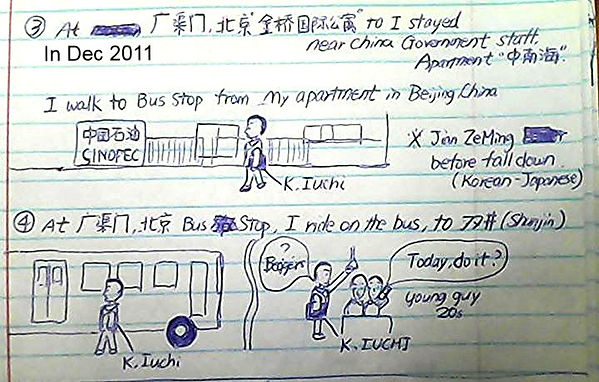 ③ At 广渠门, 北京 "金桥国际公寓" to I stayed
In Dec 2011
near China Government staff.
Apartment "中南海".
I walk to Bus Stop from My apartment in Beijing, China
中国石油
SINOPEC
K. Iuchi
※ Jan ZeMing
before fall down.
(Korean-Japanese)
④ At 广渠门, 北京 Bus Stop, I ride on the bus, to (Shunjin)
?
Today, do it?
young guy
20s
K. Iuchi
K. IUCHI